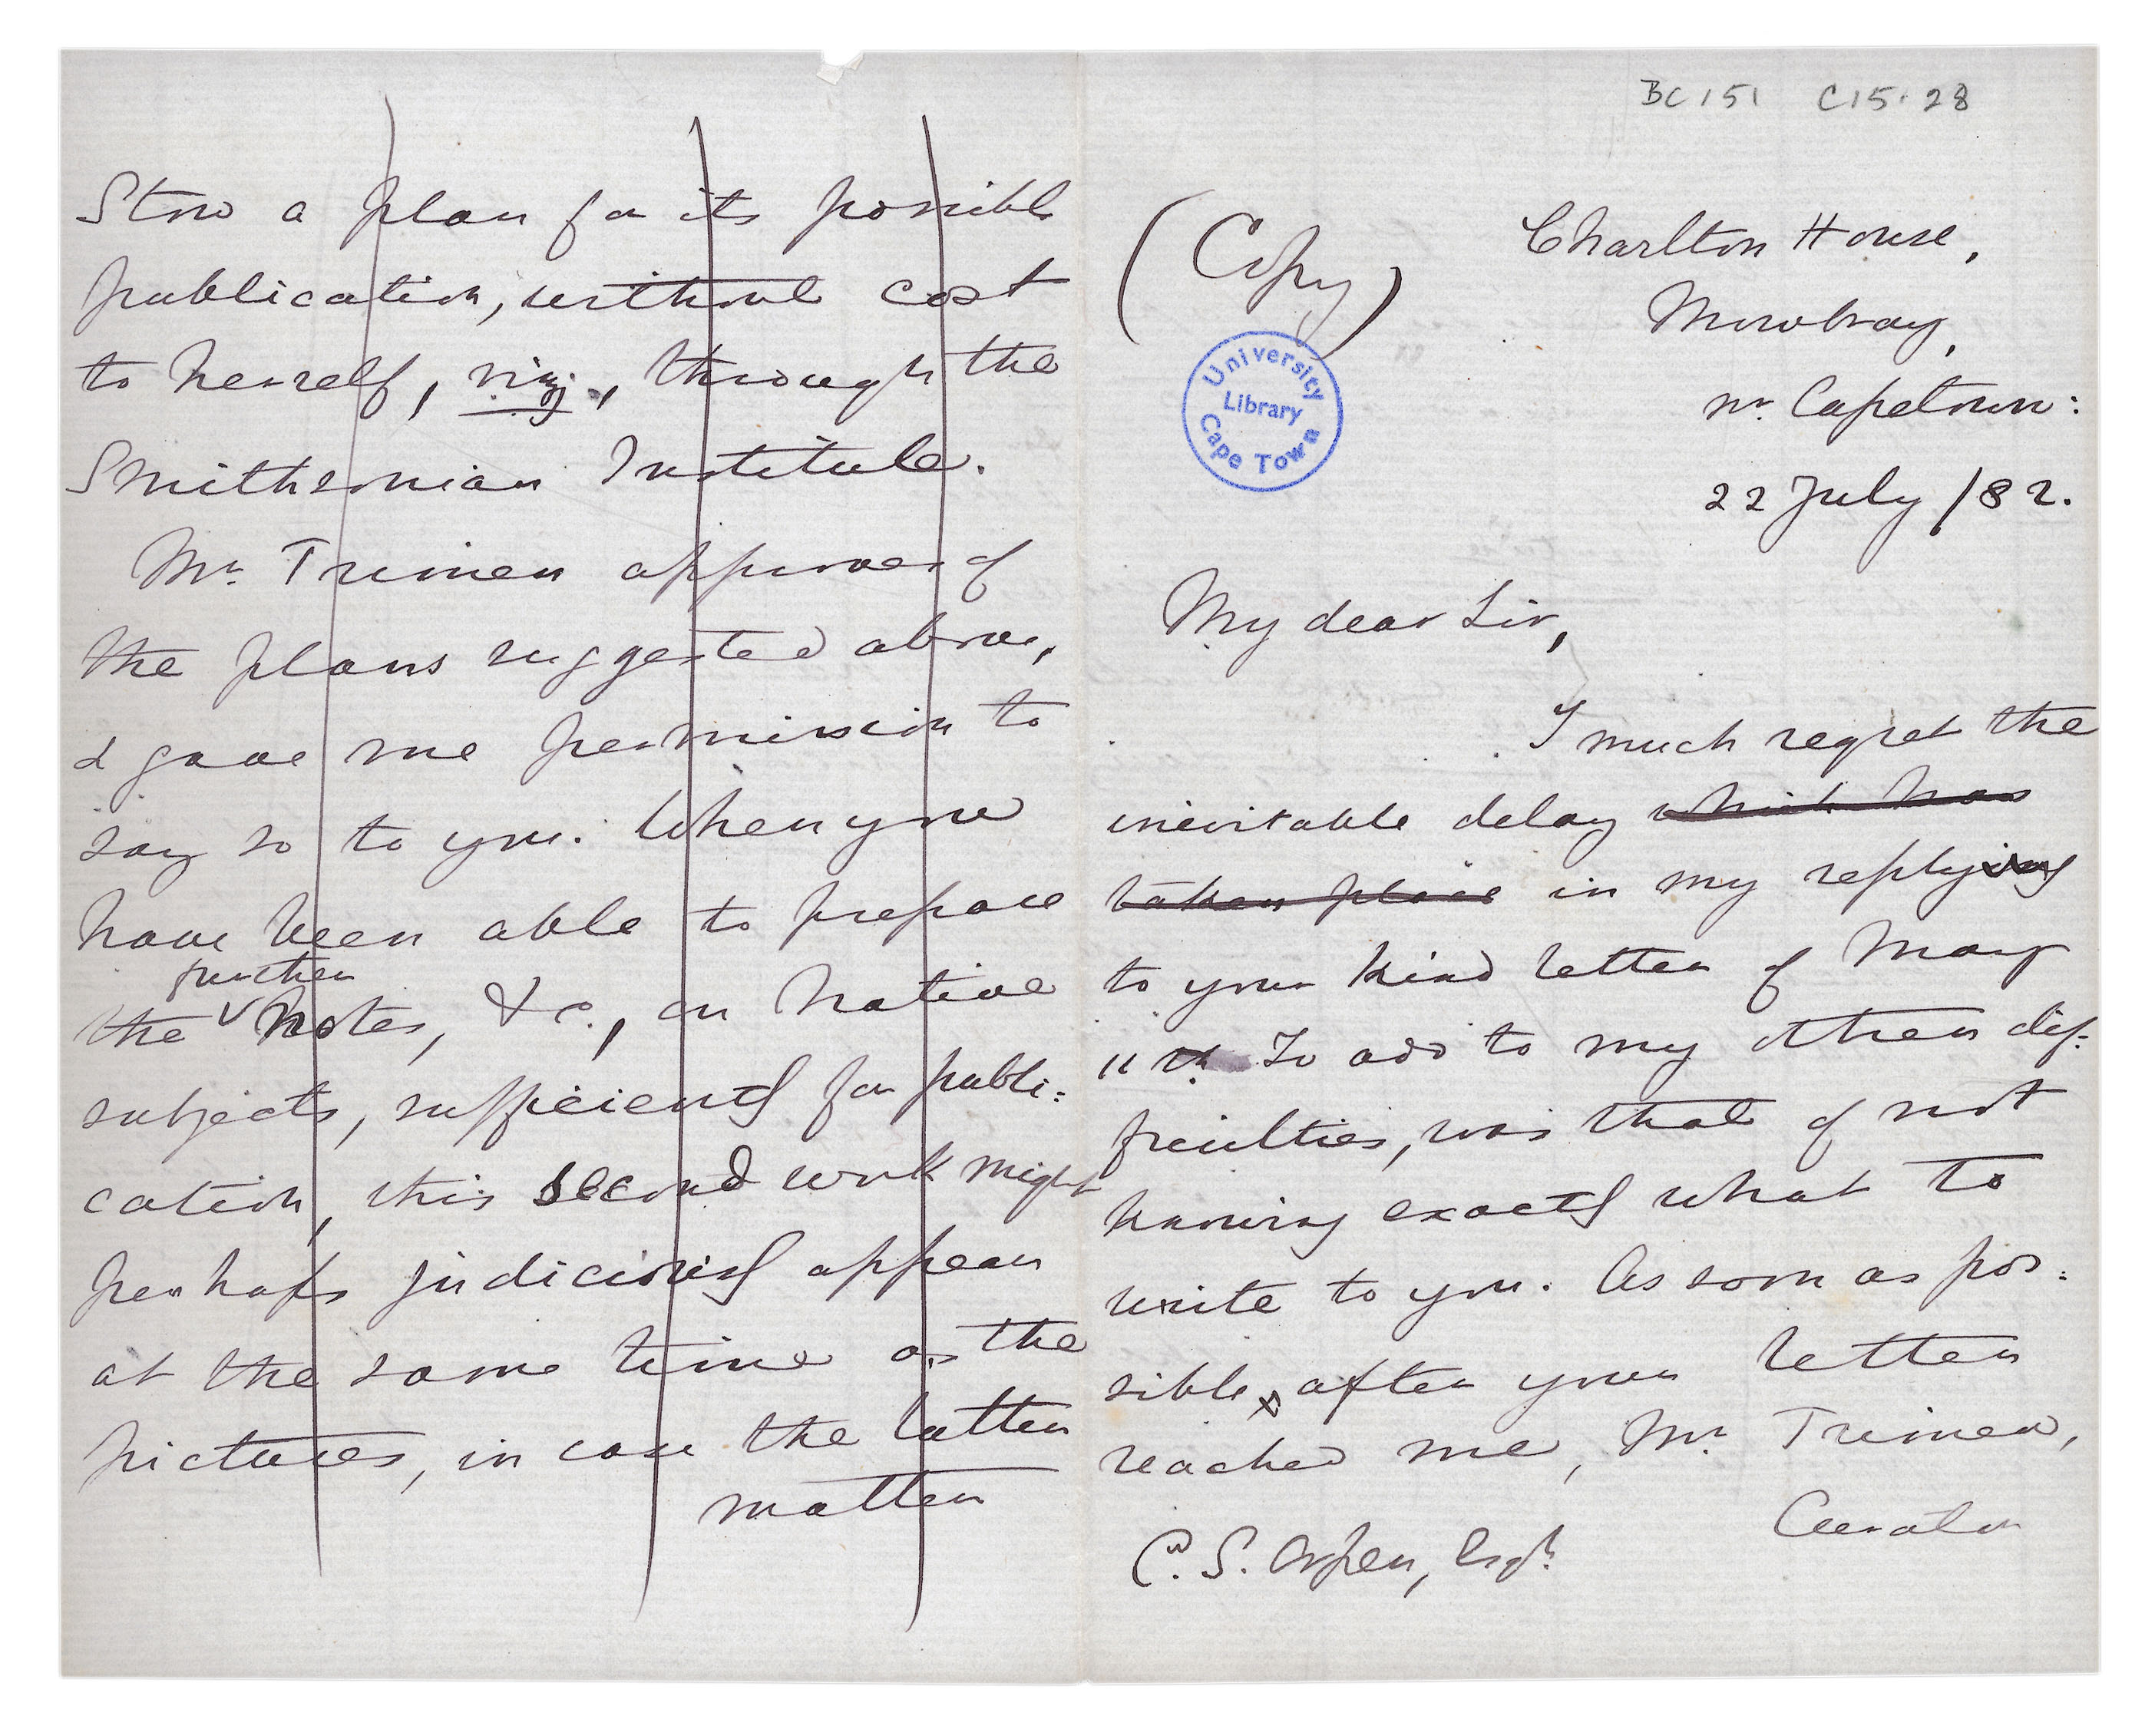 BC 151 C15.28
(Copy)
Charlton House,
Mowbray,
nr. Capetown:
22 July /82.
University Library Cape Town
My dear Sir,
I much regret the
inevitable delay which has
taken place in my replying
to your kind letter of May
11th To add to my other dif:
ficulties, was that of not
knowing exactly what to
write to you. As soon as pos:
sible, after your letter
reached me, Mr. Trimen,
Curator
C. S. Orpen, Esqr.
Stow a plan for its possible
publication, without cost
to herself, viz., through the
Smithsonian Institute.
Mr. Trimen approves of
the plans suggested above,
& gave me permission to
say so to you. When you
have been able to prepare
further
the notes, &c., on native
subjects, sufficiently for publi:
cation, this second work might
perhaps judiciously appear
at the same time as the
pictures, in case the latter
matter